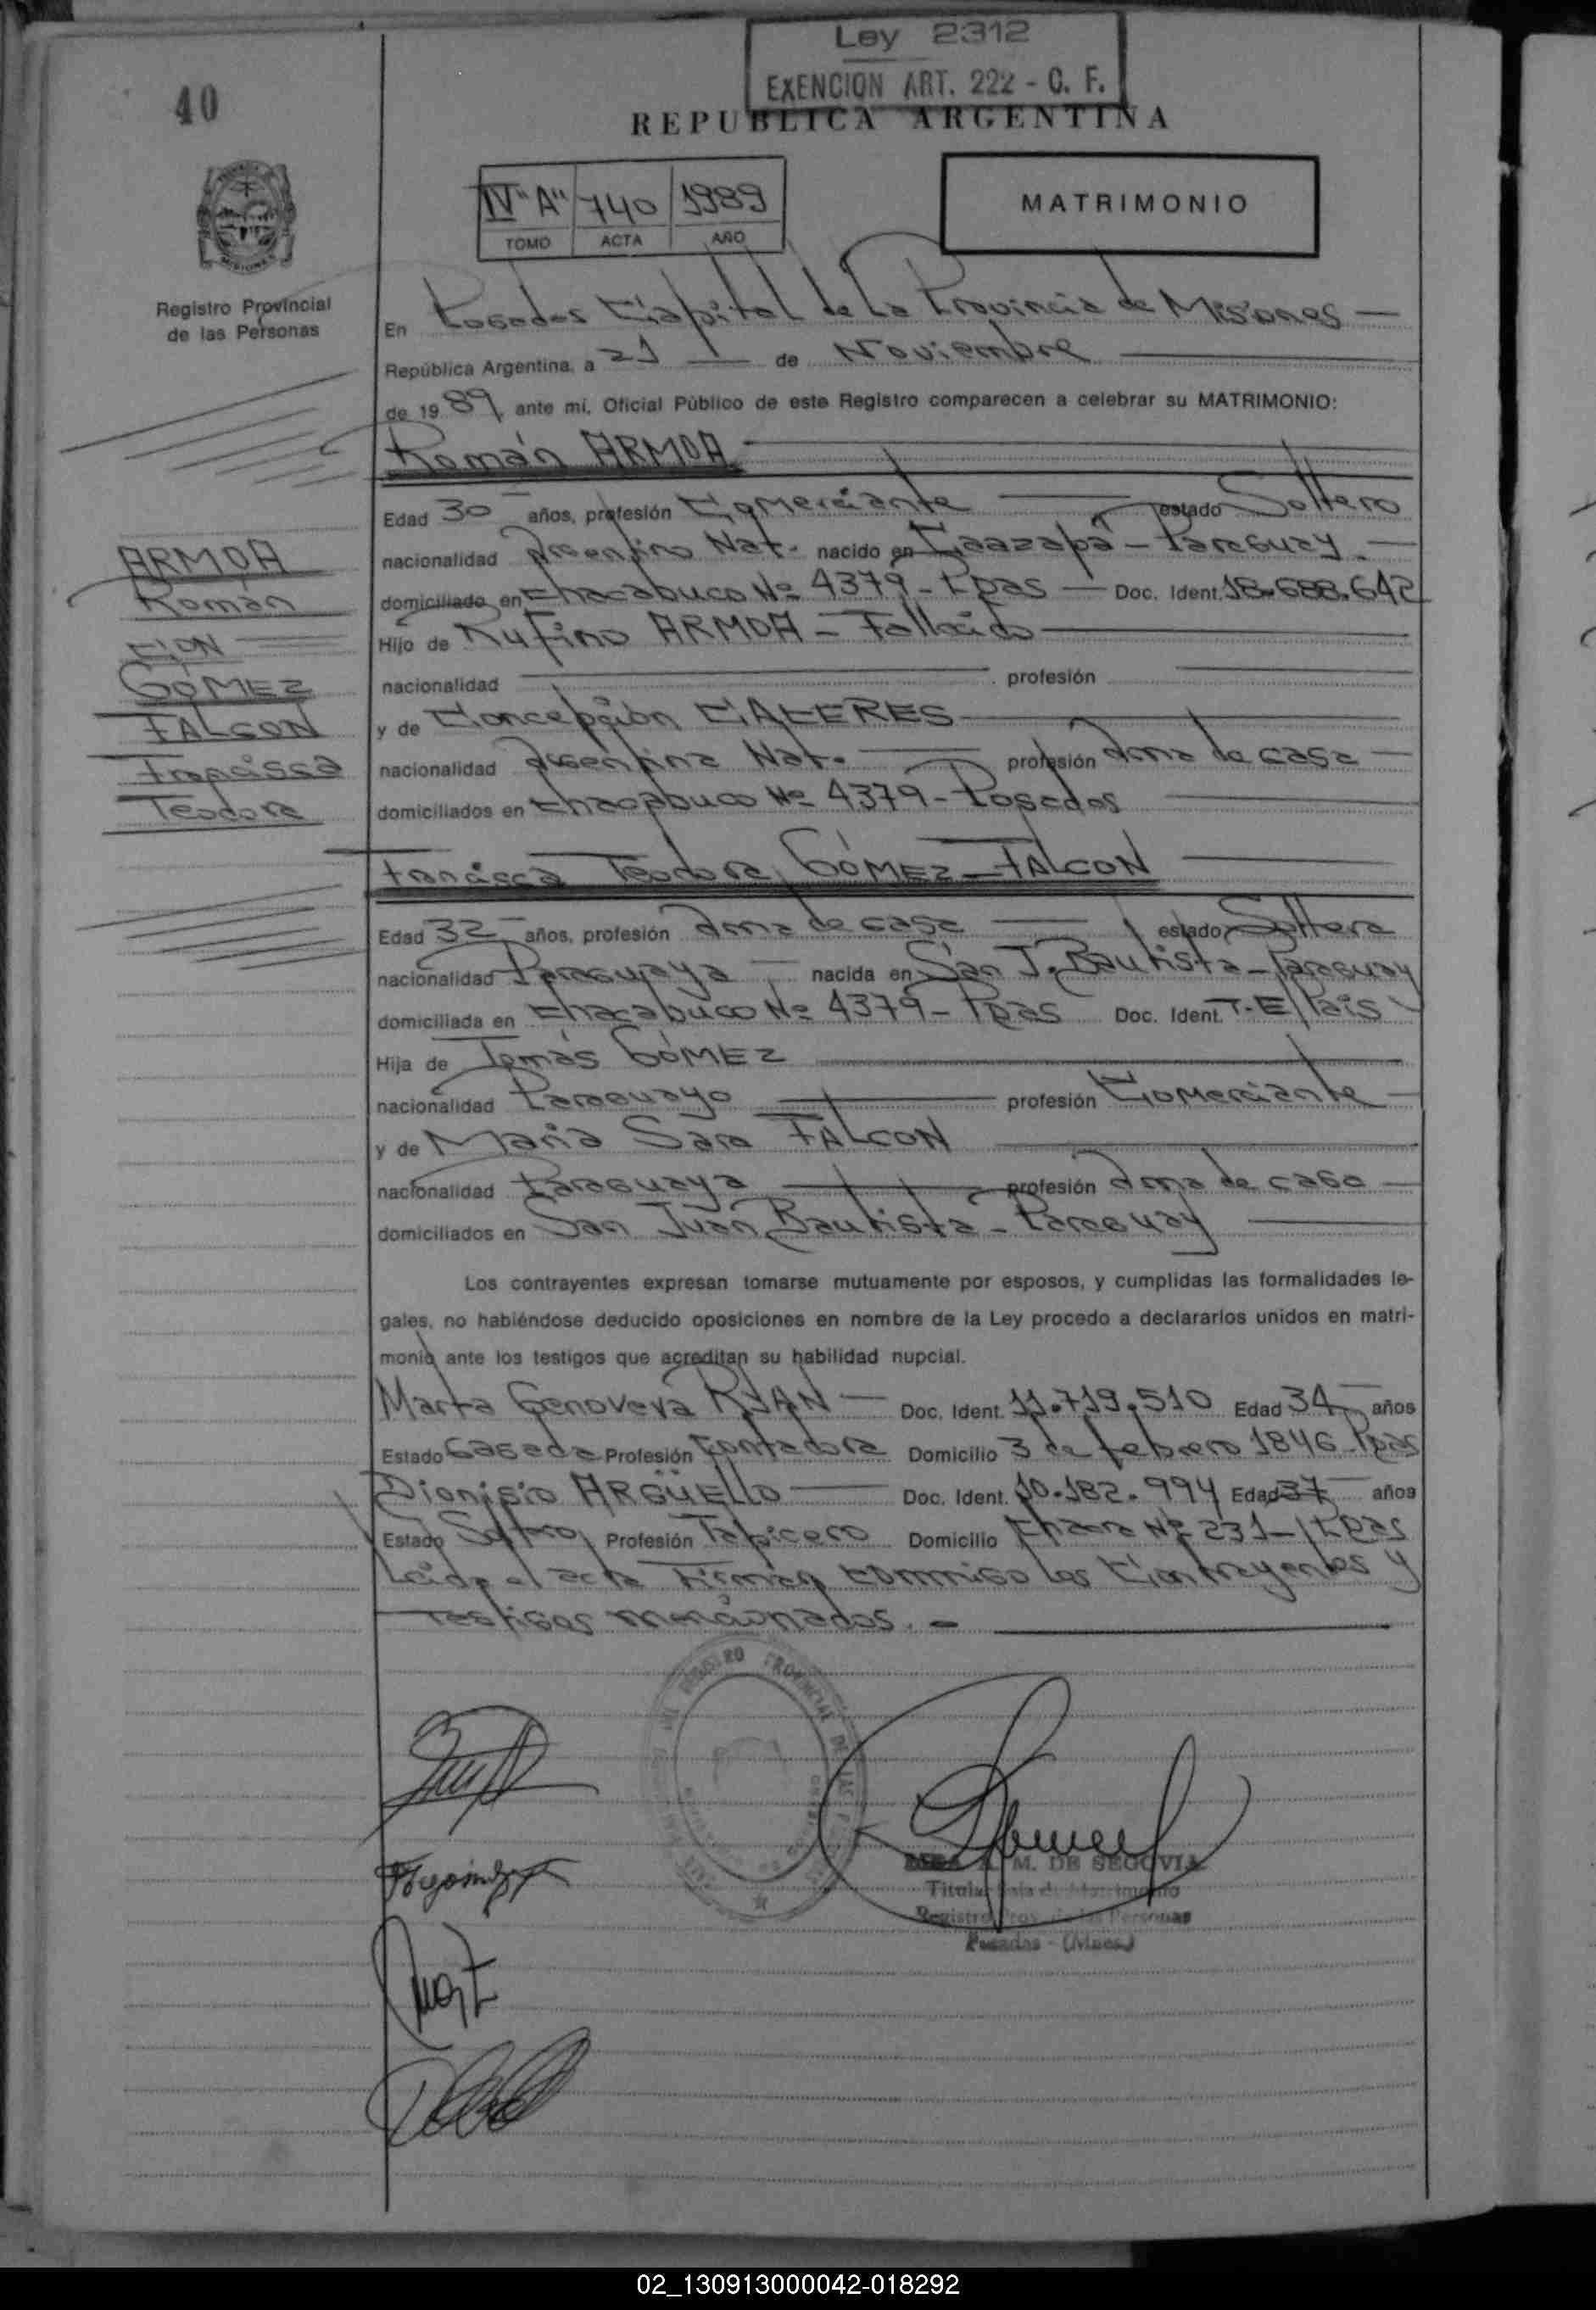 Ley 2312
EXENCION ART. 222 - C. F.
40
REPUBLICA ARGENTINA
IV "A" 740 1989
TOMO ACTA AÑO
MATRIMONIO
Registro Provincial
de las Personas
En Posadas Capital de la Provincia de Misiones
República Argentina, a 21 de Noviembre
de 1989, ante mí, Oficial Público de este Registro comparecen a celebrar su MATRIMONIO:
Román ARMOA
Edad 30 años, profesión Comerciante estado Soltero
nacionalidad Argentino Nat. nacido en Caazapá - Paraguay.
domiciliado en Chacabuco Nº 4379 - Pdas Doc. Ident. 18.688.642
Hijo de Rufino ARMOA - Fallecido
nacionalidad profesión
y de Concepción
nacionalidad Argentina Nat. profesión Ama de casa
domiciliados en Chacabuco Nº 4379 - Posadas
ARMOA
Román
CON
GÓMEZ
FALCON
Francisca
Teodora
Francisca Teodora GÓMEZ FALCON
Edad 32 años, profesión Ama de casa estado Soltera
nacionalidad Paraguaya nacida en San J. Bautista - Paraguay
domiciliada en Chacabuco Nº 4379 - Pdas Doc. Ident. T.E/Pais
Hija de Tomás GÓMEZ
nacionalidad Paraguayo profesión Comerciante
y de Maria Sara FALCON
nacionalidad Paraguaya profesión Ama de casa
domiciliados en San Juan Bautista - Paraguay
Los contrayentes expresan tomarse mutuamente por esposos, y cumplidas las formalidades le-
gales, no habiéndose deducido oposiciones en nombre de la Ley procedo a declararlos unidos en matri-
monio ante los testigos que acreditan su habilidad nupcial.
Marta Genoveva Doc. Ident. 11.719.510 Edad 34 años
Estado Casada Profesión Contadora Domicilio 3 de febrero 1846 - Pdas
Dionisio ARGÜELLO Doc. Ident. 10.182.994 Edad 37 años
Estado Soltero Profesión Tapicero Domicilio Nº 231 - Pdas
Leida el acta Firman conmigo los Contrayentes y
Testigos mencionados. -
REGISTRO PROVINCIAL DE LAS
M. DE SEGOVIA
Titular Sala de Matrimonio
Registro Prov. de las Personas
Posadas - (Mnes.)
02_130913000042-018292